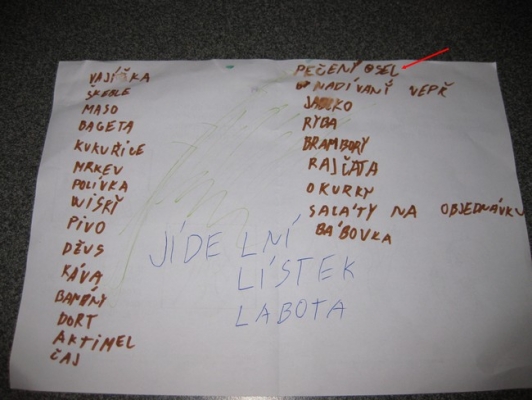 VAJÍŠKA
ŠKEBLE
MASO
BAGETA
KUKUŘICE
MRKEV
POLÍVKA
WISKY
PIVO
DŽUS
KÁVA
BANÓNY
DORT
AKTIMEL
ČAJ
PEČENÝ OSEL
NADÍVANÝ VEPŘ
JABKO
RYBA
BRAMBORY
RAJČATA
OKURKY
SALÁTY NA OBJEDNÁVKU
BÁBOVKA
JÍDELNÍ
LÍSTEK
LABOTA